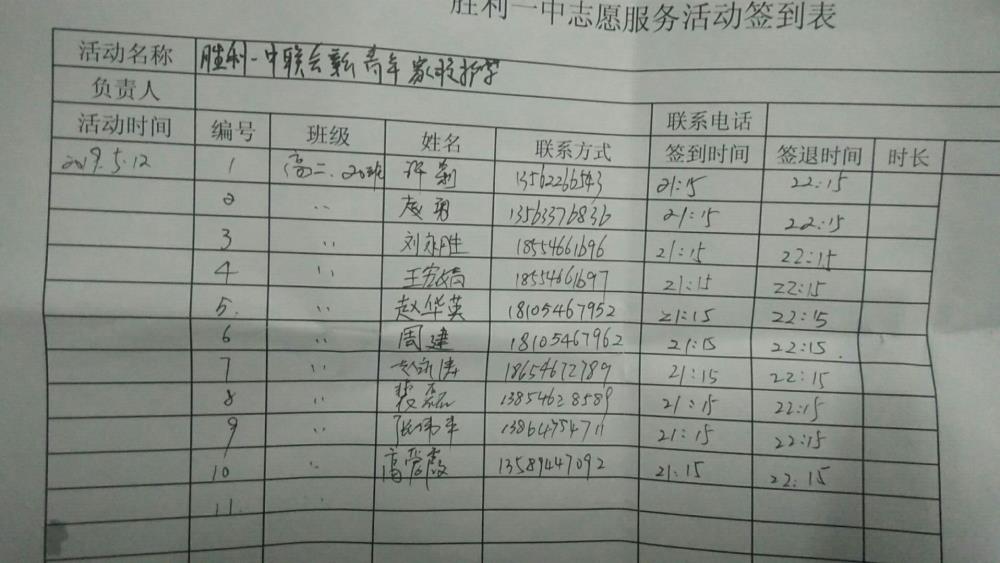 胜利一中志愿服务活动签到表
活动名称 胜利一中联合 青年家政护学
负责人 联系电话
活动时间 编号 班级 姓名 联系方式 签到时间 签退时间 时长
2019.5.12 1 高二.20班 许莉 13562266543 21:15 22:15
2 〃 13563376836 21:15 22:15
3 〃 刘永胜 18554661696 21:15 22:15
4 〃 王宏娟 18554661697 21:15 22:15
5. 〃 赵华英 18105467952 21:15 22:15
6 〃 周建 18105467962 21:15 22:15.
7 〃 18654672789 21:15 22:15
8 〃 裴磊 13854628589 21:15 22:15
9 〃 张伟华 13864754711 21:15 22:15
10 〃 高爱霞 13589447092 21:15 22:15
11.